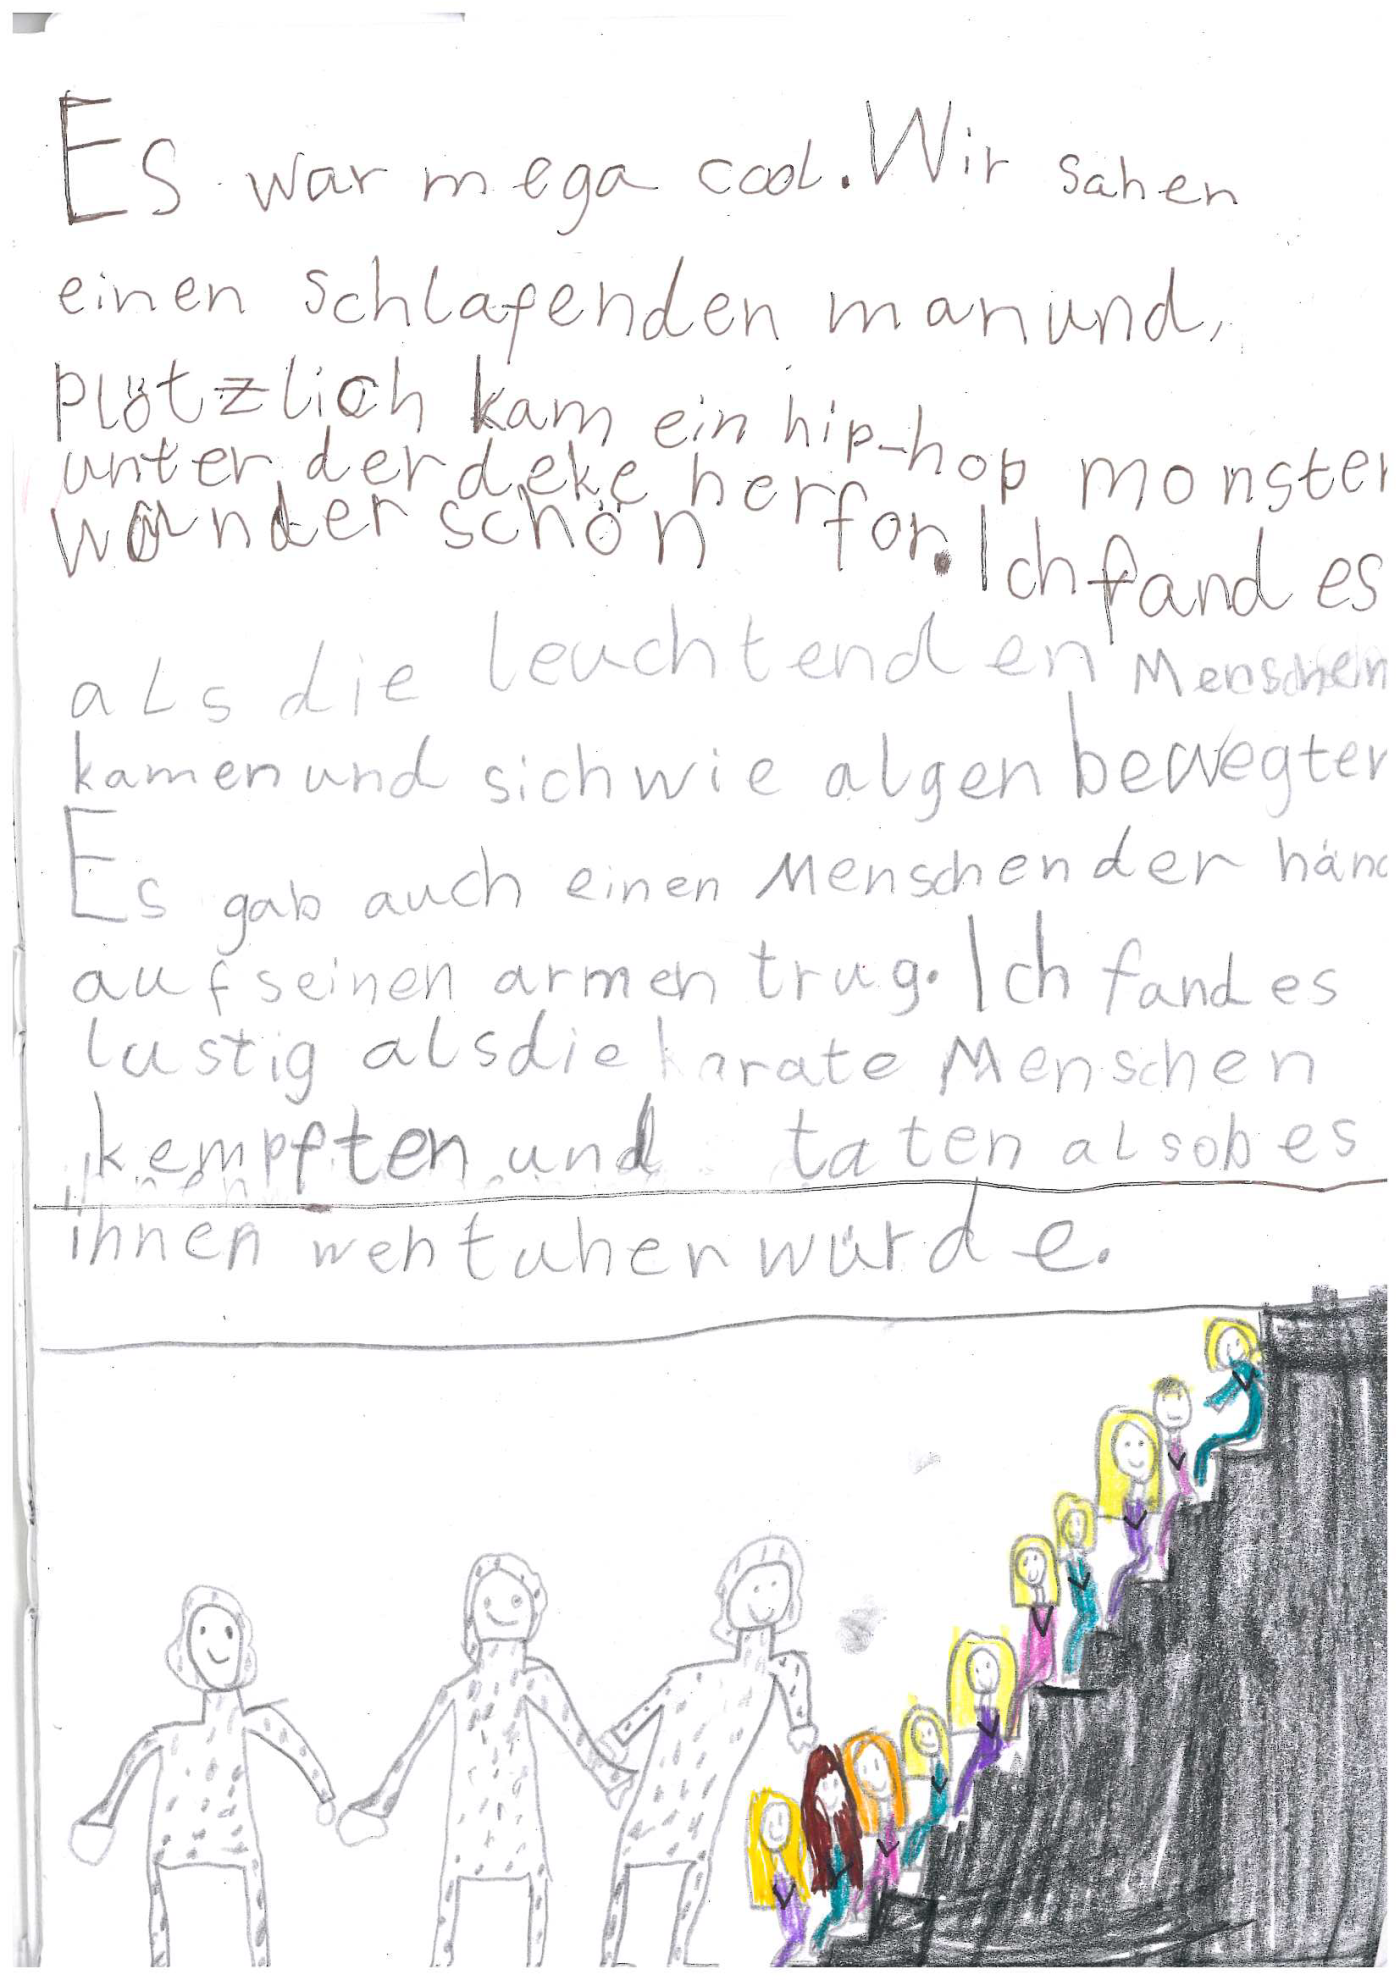 Es war mega cool. Wir sahen
einen schlafenden man und,
plötzlich kam ein hip-hop monster
unter der deke herfor. Ich fand es
wunderschön
als die leuchtenden Menschen
kamen und sich wie algen bewegten
Es gab auch einen Menschen der händ
auf seinen armen trug. Ich fand es
lustig als die karate Menschen
kempften und taten als ob es
ihnen weh tuhen würde.